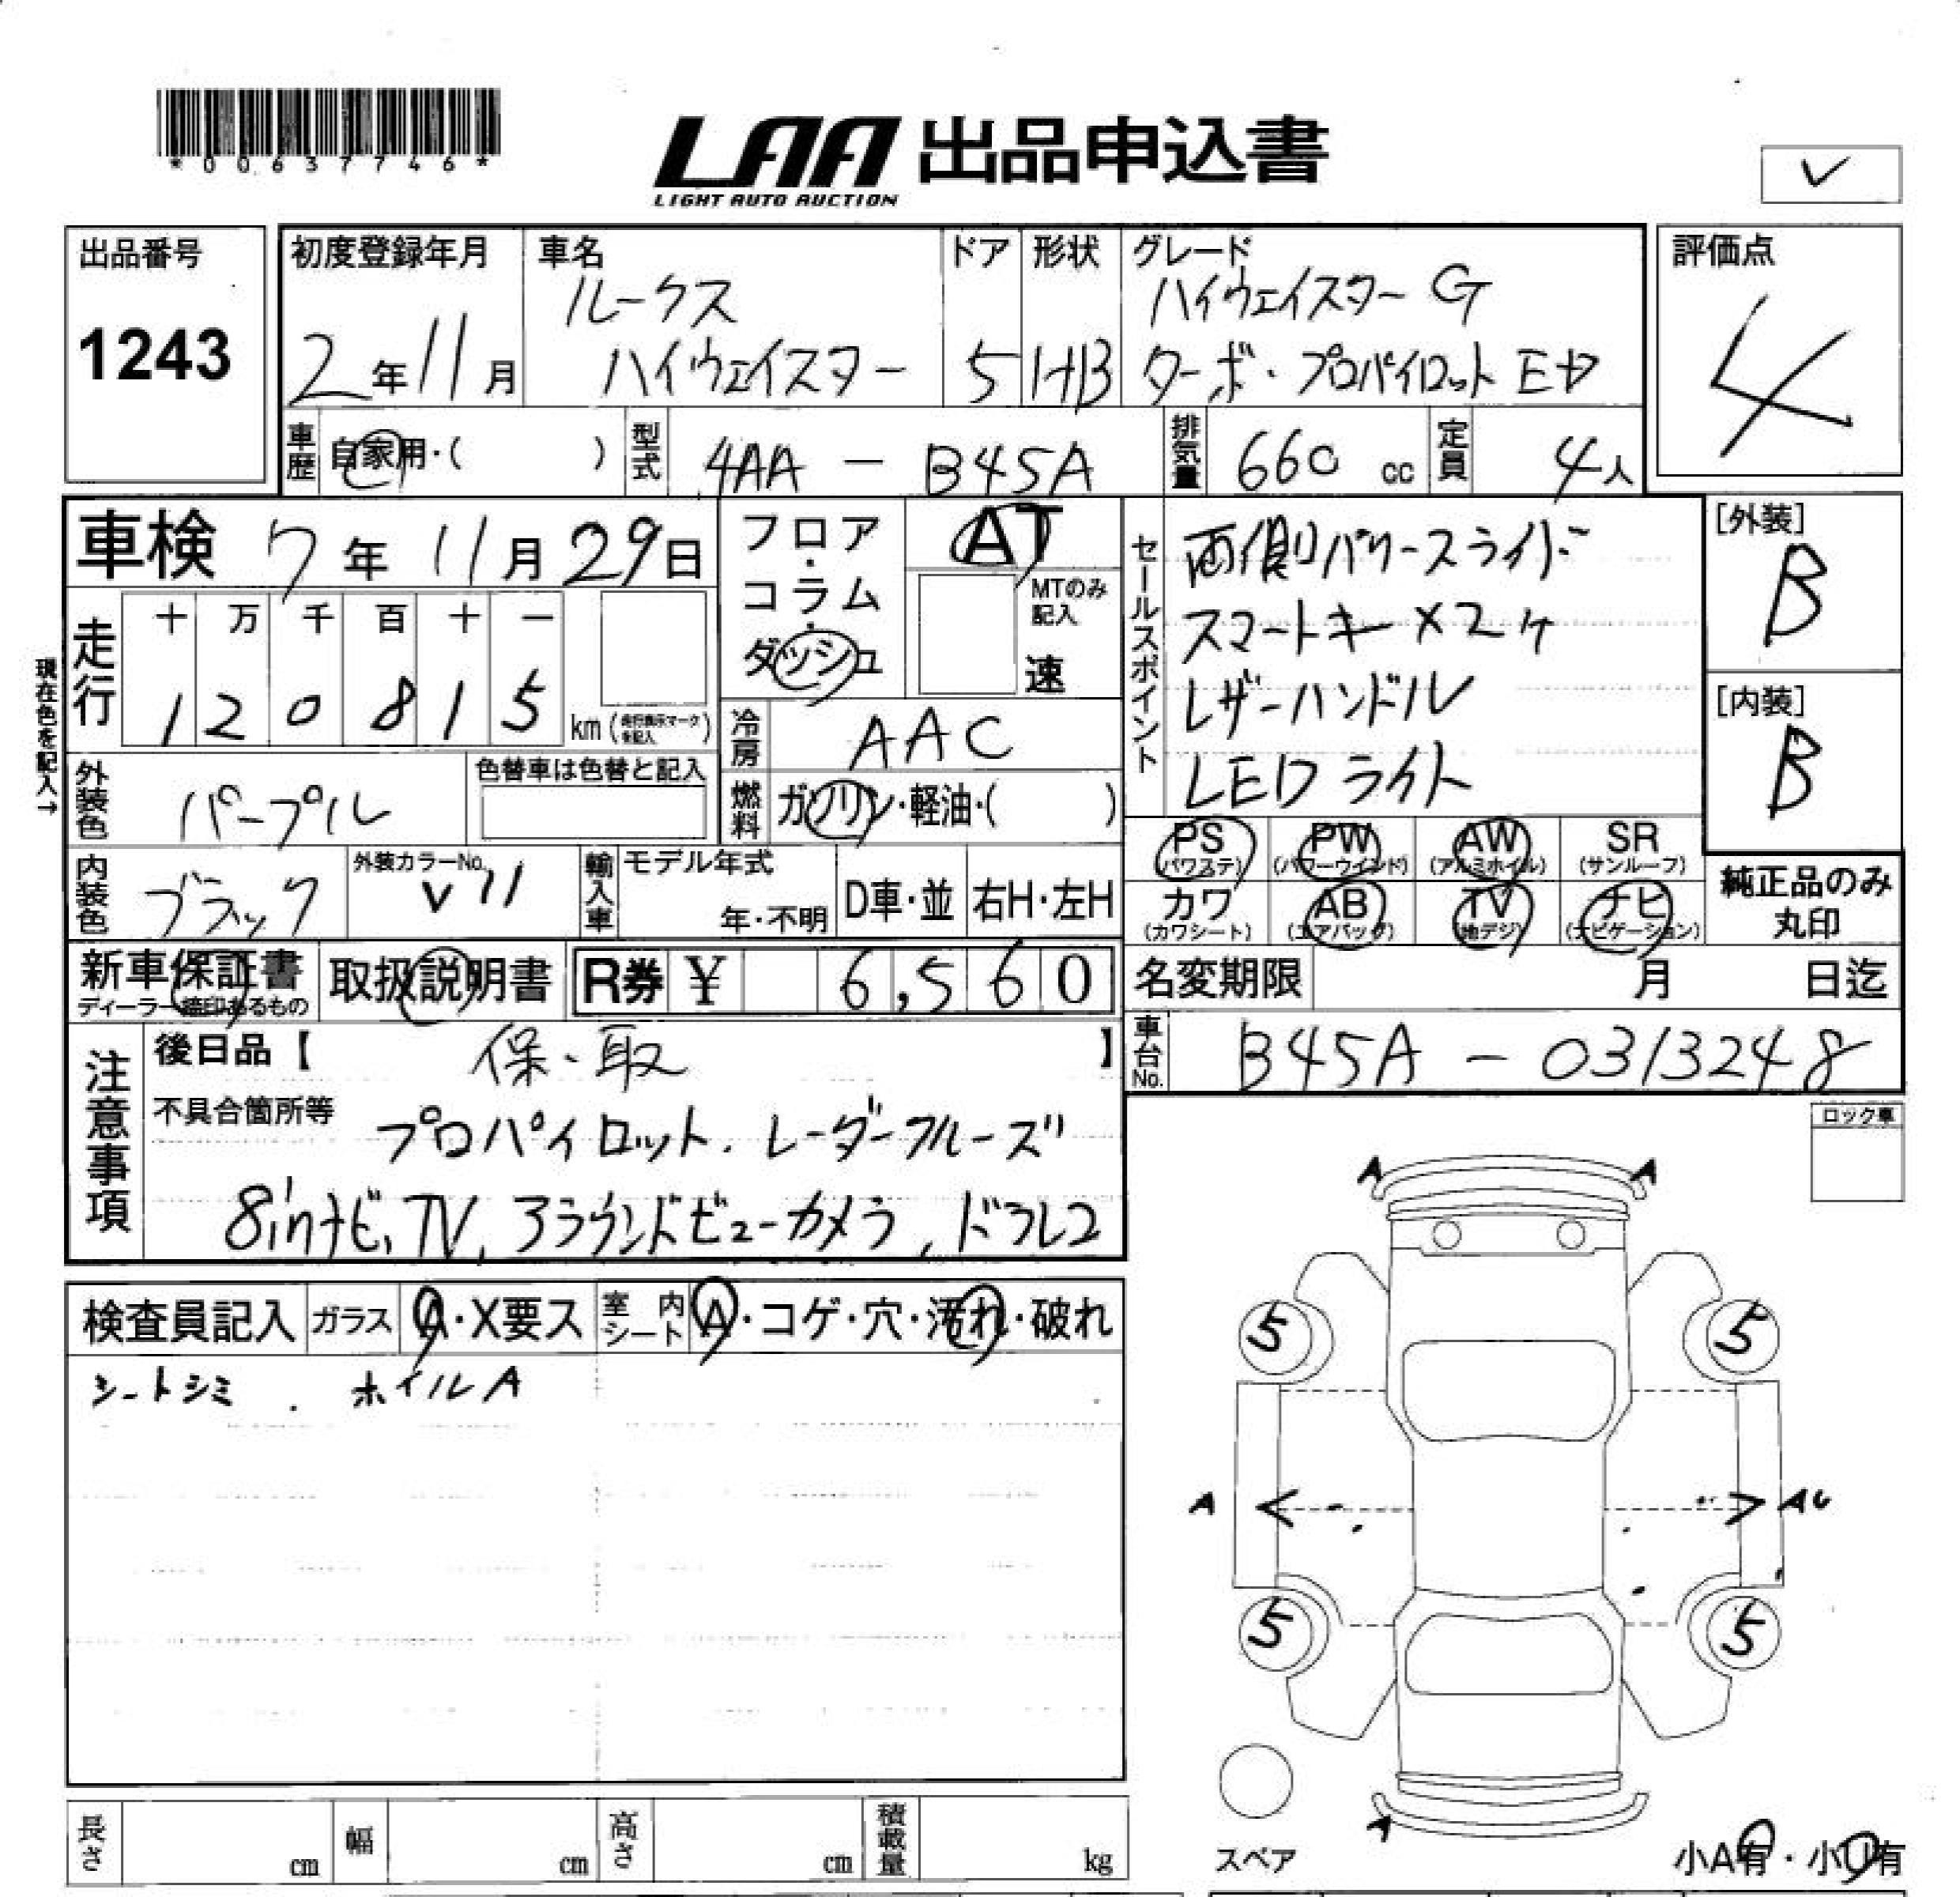 *00637746*
LAA 出品申込書
LIGHT AUTO AUCTION
✓
出品番号
1243
初度登録年月
2年11月
車名
ルークス
ハイウェイスター
ドア
5
形状
HB
グレード
ハイウェイスター G
ターボ・プロパイロット Eセ
評価点
4
車歴
自家用・( )
型式
4AA - B45A
排気量
660 cc
定員
4人
車検 7年11月29日
フロア・コラム・ダッシュ
AT
MTのみ記入
速
セールスポイント
両側パワースライド
スマートキー×2ケ
レザーハンドル
LEDライト
[外装]
B
[内装]
B
現在色を記入→
走行
十 万 千 百 十 一
1 2 0 8 1 5
km (走行表示マークを記入)
冷房
AAC
外装色
パープル
色替車は色替と記入
燃料
ガソリン・軽油・( )
内装色
ブラック
外装カラーNo.
V11
輸入車
モデル年式
年・不明
D車・並
右H・左H
PS (パワステ)
PW (パワーウインド)
AW (アルミホイル)
SR (サンルーフ)
カワ (カワシート)
AB (エアバッグ)
TV (地デジ)
ナビ (ナビゲーション)
純正品のみ
丸印
新車保証書
ディーラー捺印あるもの
取扱説明書
R券 ¥ 6,560
名変期限 月 日迄
車台No.
B45A - 0313248
注意事項
後日品【 保・取 】
不具合箇所等
プロパイロット. レーダークルーズ
8inナビ, TV, アラウンドビューカメラ, ドラレコ
ロック車
検査員記入
ガラス
A・X要ス
室内シート
A・コゲ・穴・汚れ・破れ
シートシミ . ホイルA
A A
5 5
A AU
5 5
A
スペア
小A有・小U有
長さ cm
幅 cm
高さ cm
積載量 kg